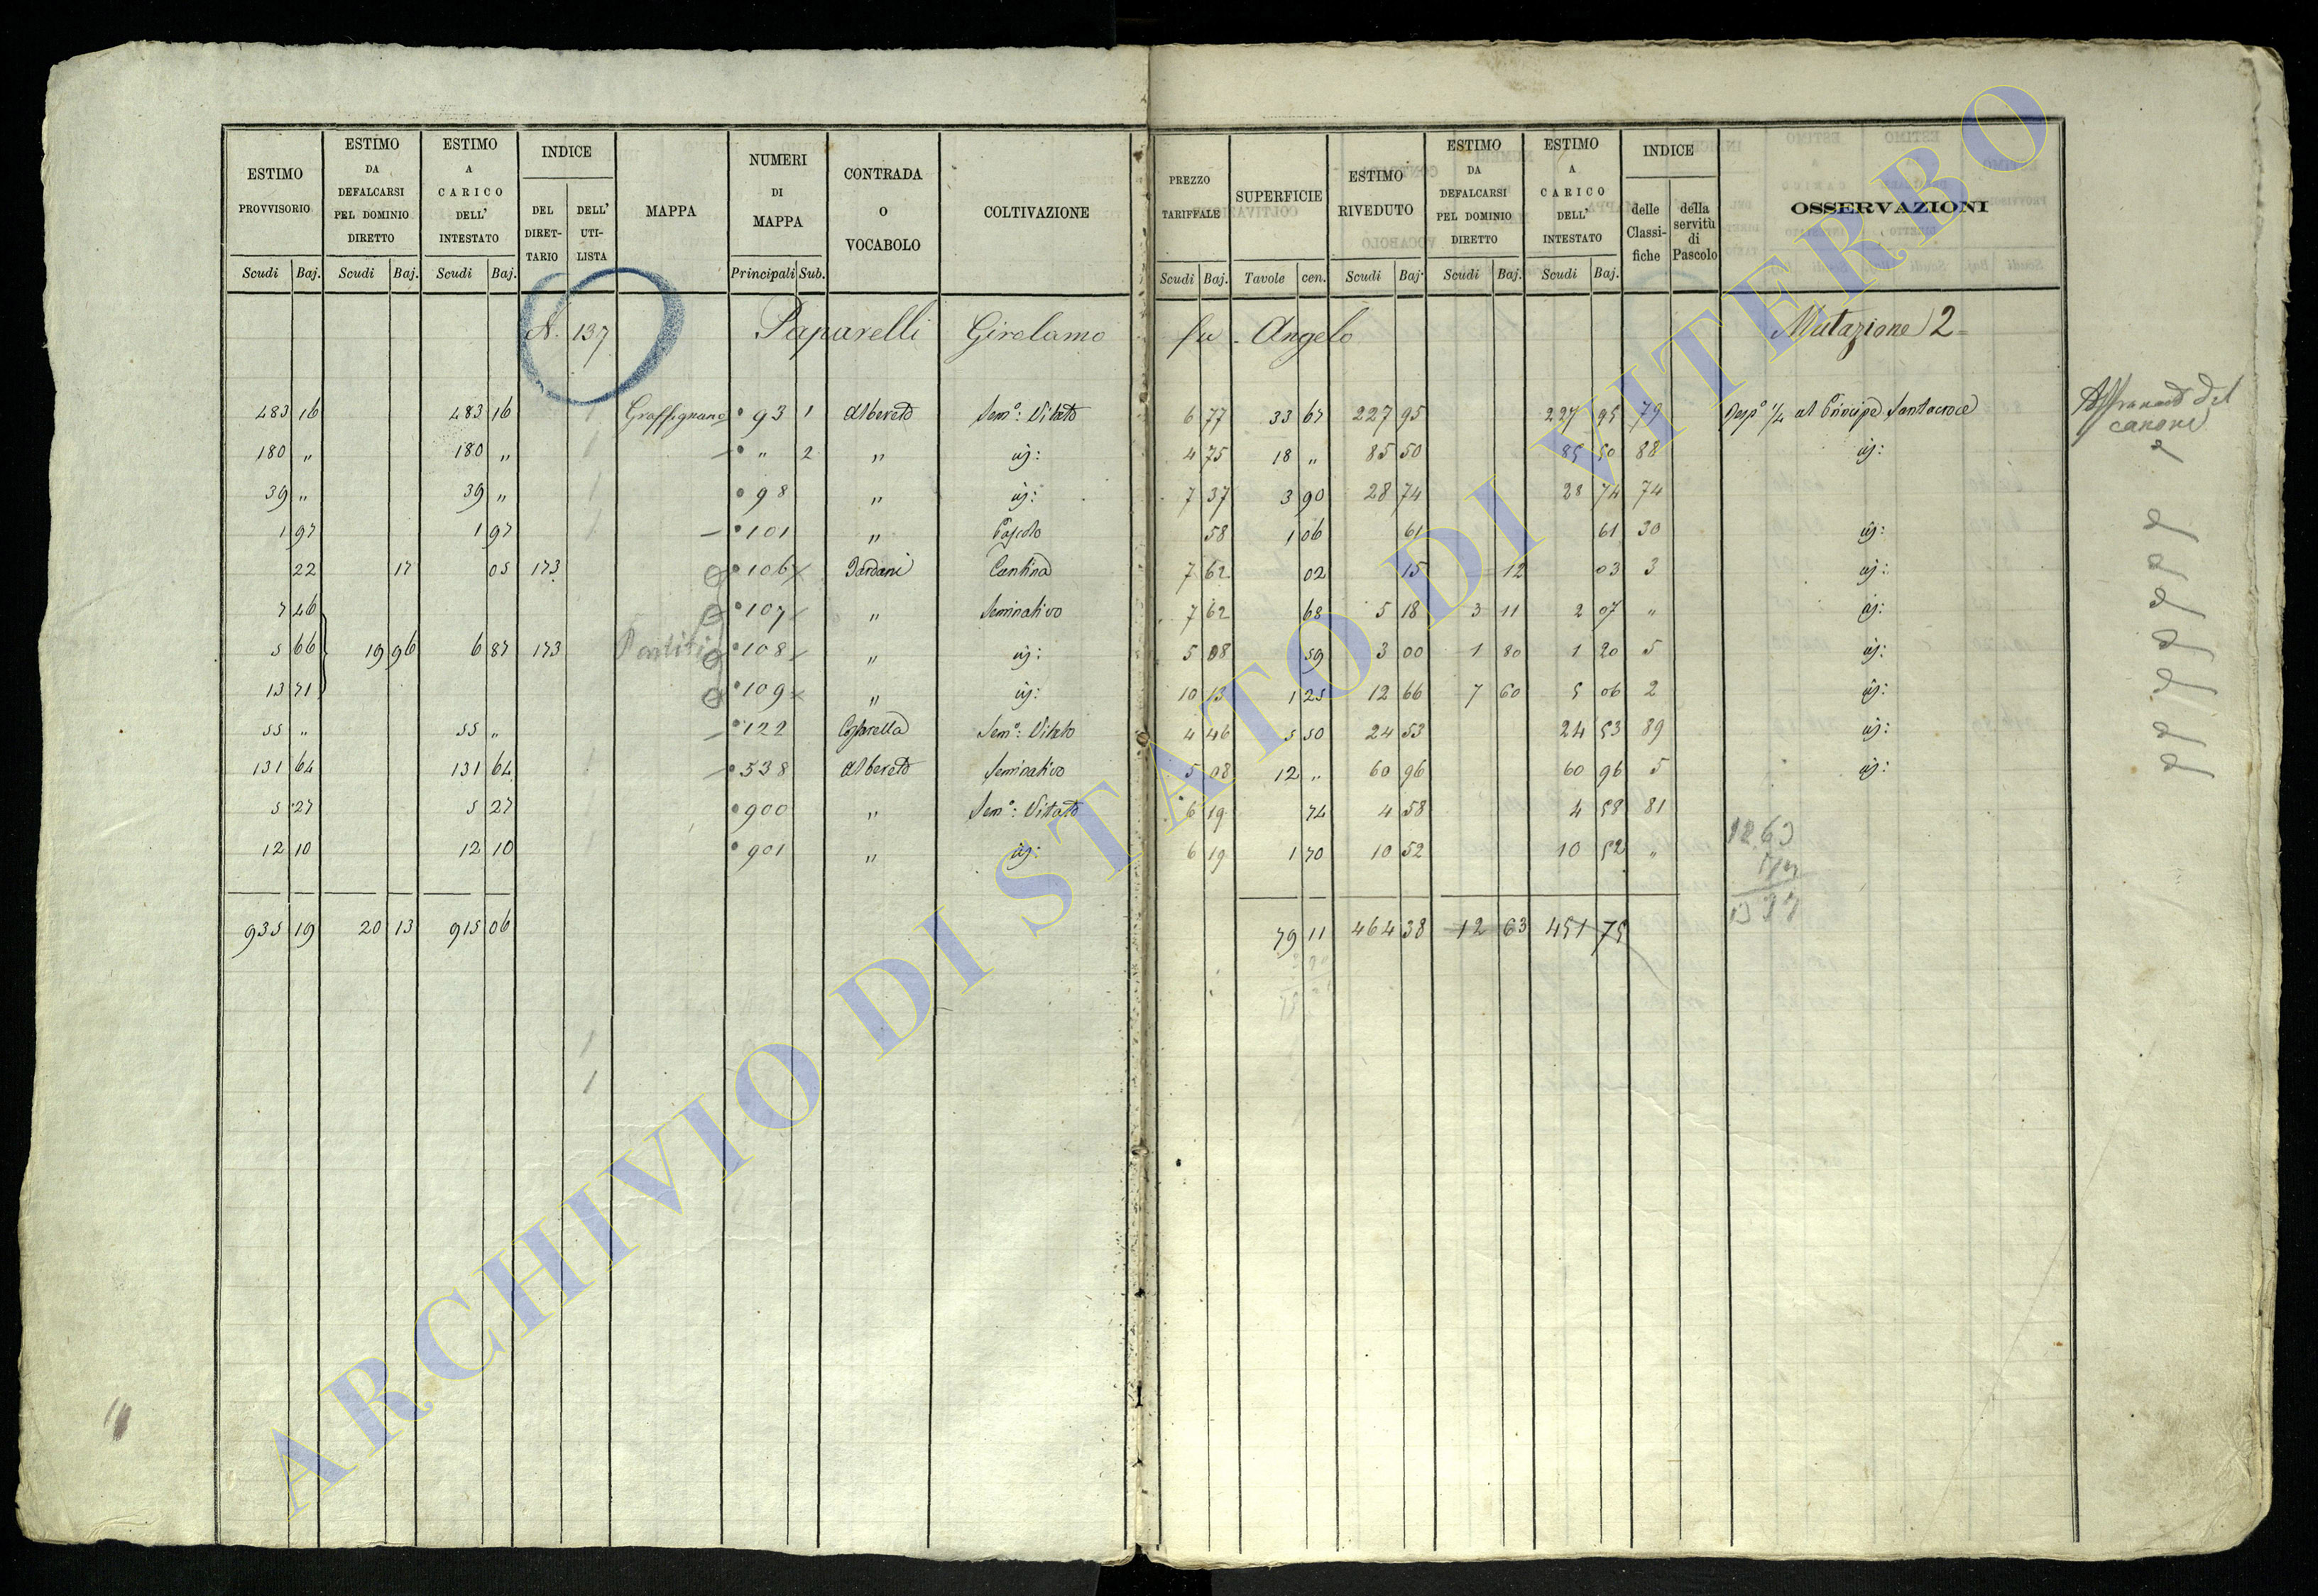 ESTIMO PROVVISORIO Scudi Baj. | ESTIMO DA DEFALCARSI PEL DOMINIO DIRETTO Scudi Baj. | ESTIMO A CARICO DELL' INTESTATO Scudi Baj. | INDICE DEL DIRET-TARIO | DELL' UTI-LISTA | MAPPA | NUMERI DI MAPPA Principali Sub. | CONTRADA O VOCABOLO | COLTIVAZIONE | PREZZO TARIFFALE Scudi Baj. | SUPERFICIE Tavole cen. | ESTIMO RIVEDUTO Scudi Baj. | ESTIMO DA DEFALCARSI PEL DOMINIO DIRETTO Scudi Baj. | ESTIMO A CARICO DELL' INTESTATO Scudi Baj. | INDICE delle Classi-fiche | della servitù di Pascolo | OSSERVAZIONI
N. 137 Paparelli Girolamo fu Angelo Mutazione 2
483 16 483 16 Graffignano 93 1 Albereto Sem°: Vitato 6 77 33 67 227 95 227 95 79 Risp° 1/4 al Principe Santacroce
Affrancato del
canone
180 " 180 " " 2 " id: 4 75 18 " 85 50 85 50 88 id:
39 " 39 " 98 " id: 7 37 3 90 28 74 28 74 74
1 97 1 97 101 " Pascolo 58 1 06 61 61 30 id:
22 17 05 173 106 Cantina 7 62 02 15 12 03 3 id:
7 46 107 " Seminativo 7 62 68 5 18 3 11 2 07 " id:
5 66 19 96 6 87 173 108 " id: 5 08 59 3 00 1 80 1 20 5 id:
13 71 109 " id: 10 13 1 25 12 66 7 60 5 06 2 id:
55 " 55 " 122 Sem°: Vitato 4 46 5 50 24 53 24 53 89 id:
131 64 131 64 538 Albereto Seminativo 5 08 12 " 60 96 60 96 5 id:
5 27 5 27 900 " Sem°: Vitato 6 19 74 4 58 4 58 81
12 10 12 10 901 " id: 6 19 1 70 10 52 10 52 "
12.63
935 19 20 13 915 06 79 11 464 38 12 63 451 75
ARCHIVIO DI STATO DI VITERBO